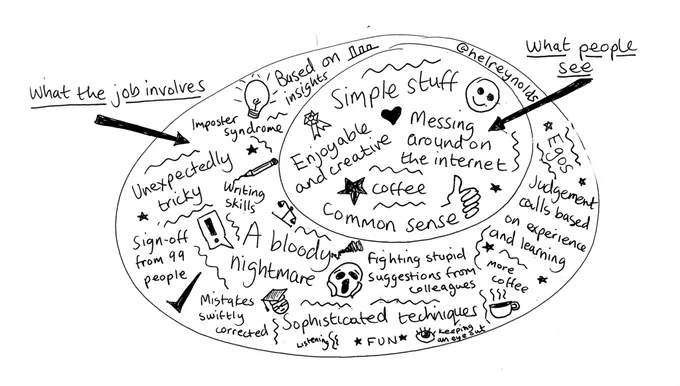 What the job involves
What people
see
@helreynolds
Based on
insights
Imposter
syndrome
Unexpectedly
tricky
Writing
skills
Sign-off
from 99
people
A bloody
nightmare
Mistakes
swiftly
corrected
Simple stuff
Messing
around on
the internet
Enjoyable
and creative
coffee
Common sense
Egos
Judgement
calls based
on experience
and learning
more
coffee
Fighting stupid
suggestions from
colleagues
Sophisticated techniques
Listening
FUN
keeping
an eye out